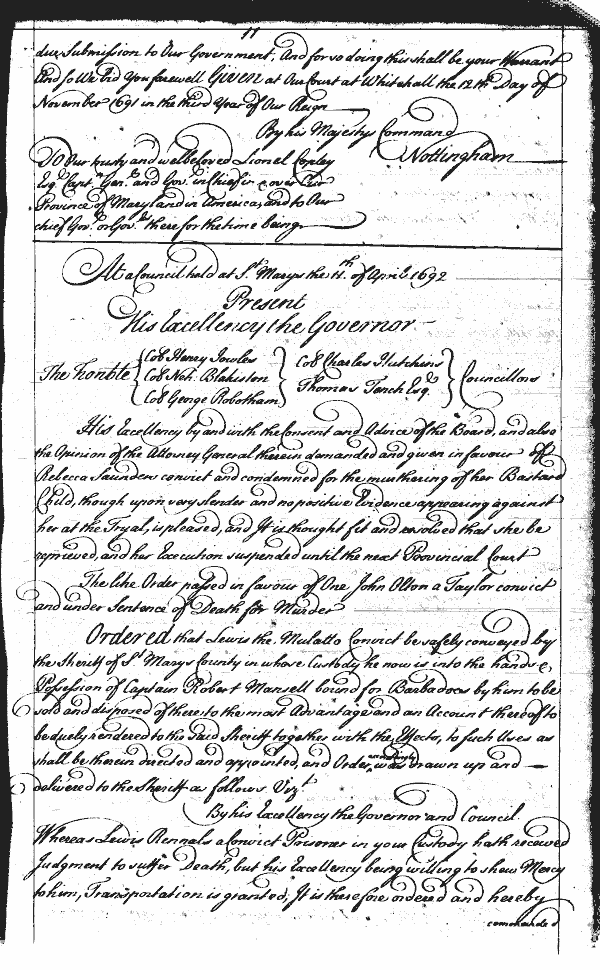 11
due Submission to Our Government, And for so doing this shall be your Warrant
And so We bid You farewell Given at Our Court at Whitehall the 12th Day of
November 1691 in the third Year of Our Reign
By his Majestys Command
Nottingham
To Our trusty and welbeloved Lionel Copley
Esqr. Capt. Genl. and Govr. in chief in & over Our
Province of Maryland in America, and to Our
chief Govr. or Govrs. there for the time being
At a Council held at St. Marys the 11th of April 1692
Present
His Excellency the Governor
The honble { Col Henry Jowles } Col Charles Hutchins } Councillors
Col Neh. Blakiston Thomas Tench Esqr.
Col George Robotham
His Excellency by and with the Consent and Advice of the Board, and also
the Opinion of the Attorney General therein demanded and given in favour of
Rebecca Saunders convict and condemned for the murthering of her Bastard
Child, though upon very slender and no positive Evidence appearing against
her at the Tryal, is pleased, and It is thought fit and resolved that she be
reprieved, and her Execution suspended until the next Provincial Court
The like Order passed in favour of One John Olton a Taylor convict
and under Sentence of Death for Murder
Ordered that Lewis the Mulatto Convict be safely conveyed by
the Sheriff of St. Marys County in whose Custody he now is into the hands &
Possession of Captain Robert Mansell bound for Barbadoes by him to be
sold and disposed of there to the most Advantage and an Account thereof to
be duely rendered to the said Sheriff together with the Effects, to such Uses as
shall be therein directed and appointed, and Order accordingly was drawn up and
delivered to the Sheriff as follows Vizt.
By his Excellency the Governor and Council
Whereas Lewis Rennals a Convict Prisoner in your Custody hath received
Judgment to suffer Death, but his Excellency being willing to shew Mercy
to him, Transportation is granted; It is therefore ordered and hereby
comanded